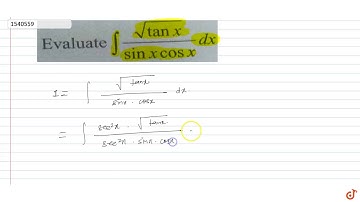 1540559
Evaluate ∫ √tan x / sin x cos x dx
I = ∫ √tanx / sinx · cosx dx
= ∫ sec²x · √tanx / sec²x · sinx · cosx